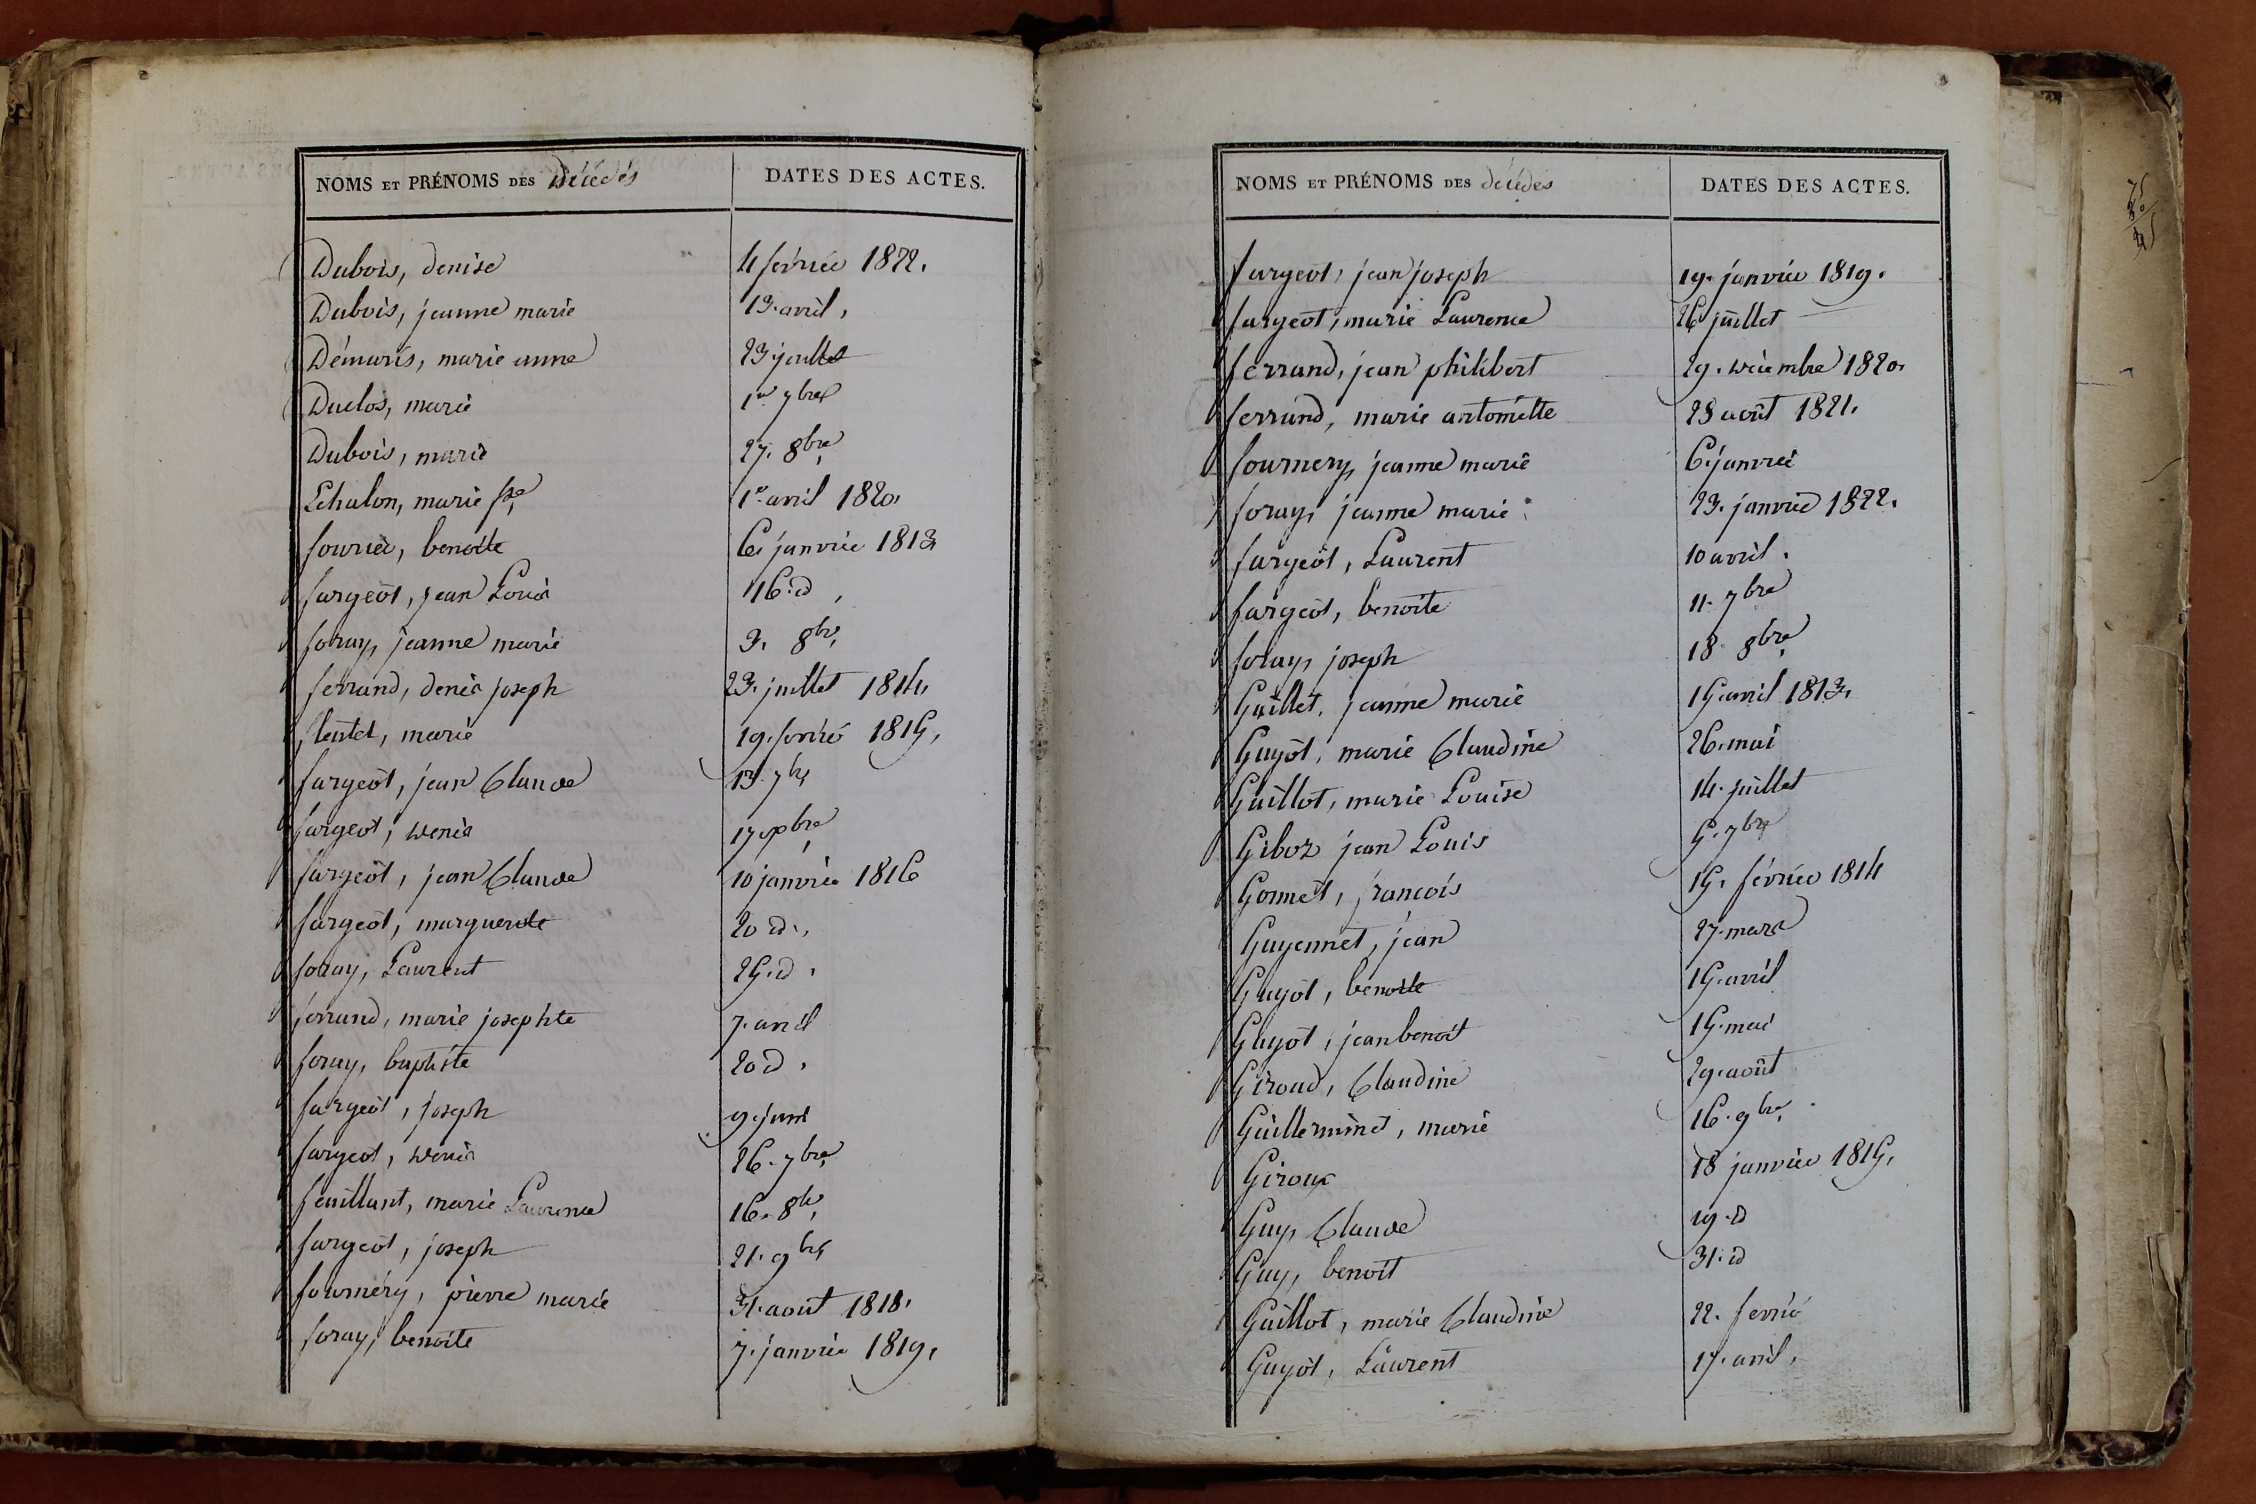 NOMS ET PRÉNOMS DES décédés DATES DES ACTES.
Dubois, denise 4 février 1822.
Dubois, jeanne marie 13. avril,
Démaris, marie anne 23 juillet
Duclos, marie 1er 7bre
Dubois, marie 27. 8bre
Echalon, marie fse 1er avril 1820,
fourier, benoite 6, janvier 1813
fargeot, jean Louis 16. d,
foray, jeanne marie 3. 8bre,
ferrand, denis joseph 23. juillet 1814,
flentet, marie 19. février 1815,
fargeot, jean Claude 13. 7bre
fargeot, denis 17 xbre
fargeot, jean Claude 10 janvier 1816
fargeot, marguerite 20 d.,
foray, Laurent 25. d.
ferrand, marie josephte 7. avril
foray, baptiste 20 d.
fargeot, joseph 9. juin
fargeot, denis 26. 7bre
feuillant, marie Laurence 16. 8bre,
fargeot, joseph 21. 9bre
fournéry, pierre marie 31. août 1818.
foray, benoite 7. janvier 1819,
NOMS ET PRÉNOMS DES décédés DATES DES ACTES.
fargeot, jean joseph 19. janvier 1819.
fargeot, marie Laurence 26 juillet
ferrand, jean philibert 29. décembre 1820,
ferrand, marie antoinette 23 août 1821.
fournery, jeanne marie 6. janvier
foray, jeanne marie 23. janvier 1822.
fargeot, Laurent 10 avril.
fargeot, benoite 11. 7bre
foray, joseph 18 8bre,
Guillet, jeanne marie 15 avril 1813,
Guyot, marie Claudine 26. mai
Guillot, marie Louise 14. juillet
Giboz jean Louis 5. 7bre
Gonnet, françois 15. février 1814
Guyennet, jean 27. mars
Guyot, benoite 15. avril
Guyot, jean benoit 15. mai
Giroud, Claudine 29. août
Guilleminet, marie 16. 9bre,
Giroux 18 janvier 1815,
Guy, Claude 19. d
Guy, benoit 31. d
Guillot, marie Claudine 22. février
Guyot, Laurent 17. avril,